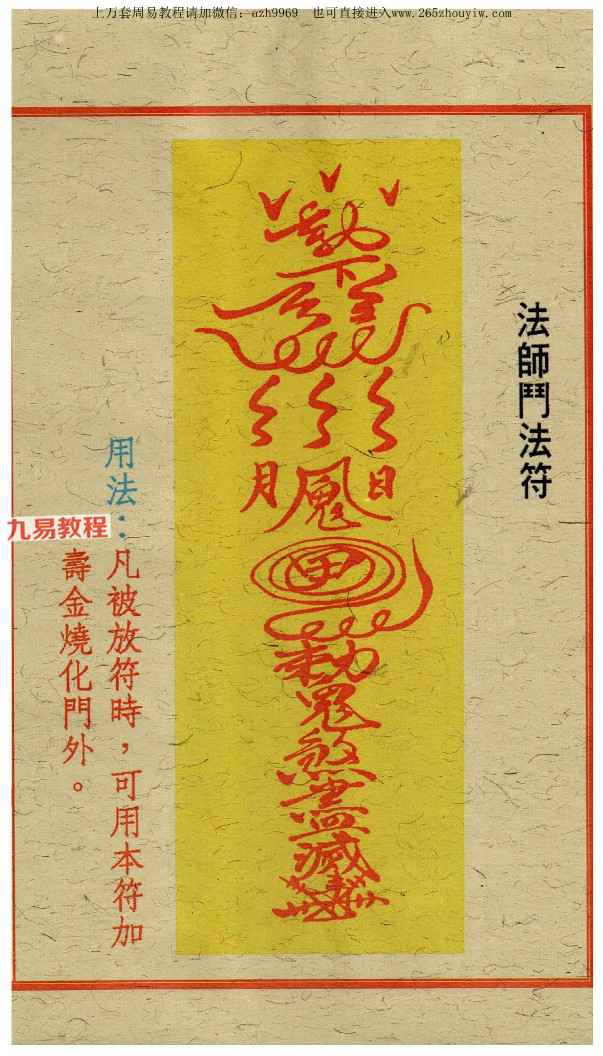 上万套周易教程请加微信：azh9969　也可直接进入www.265zhouyiw.com
法師鬥法符
勅下
月 日
勅鬼煞盡滅
用法：凡被放符時，可用本符加
壽金燒化門外。
九易教程